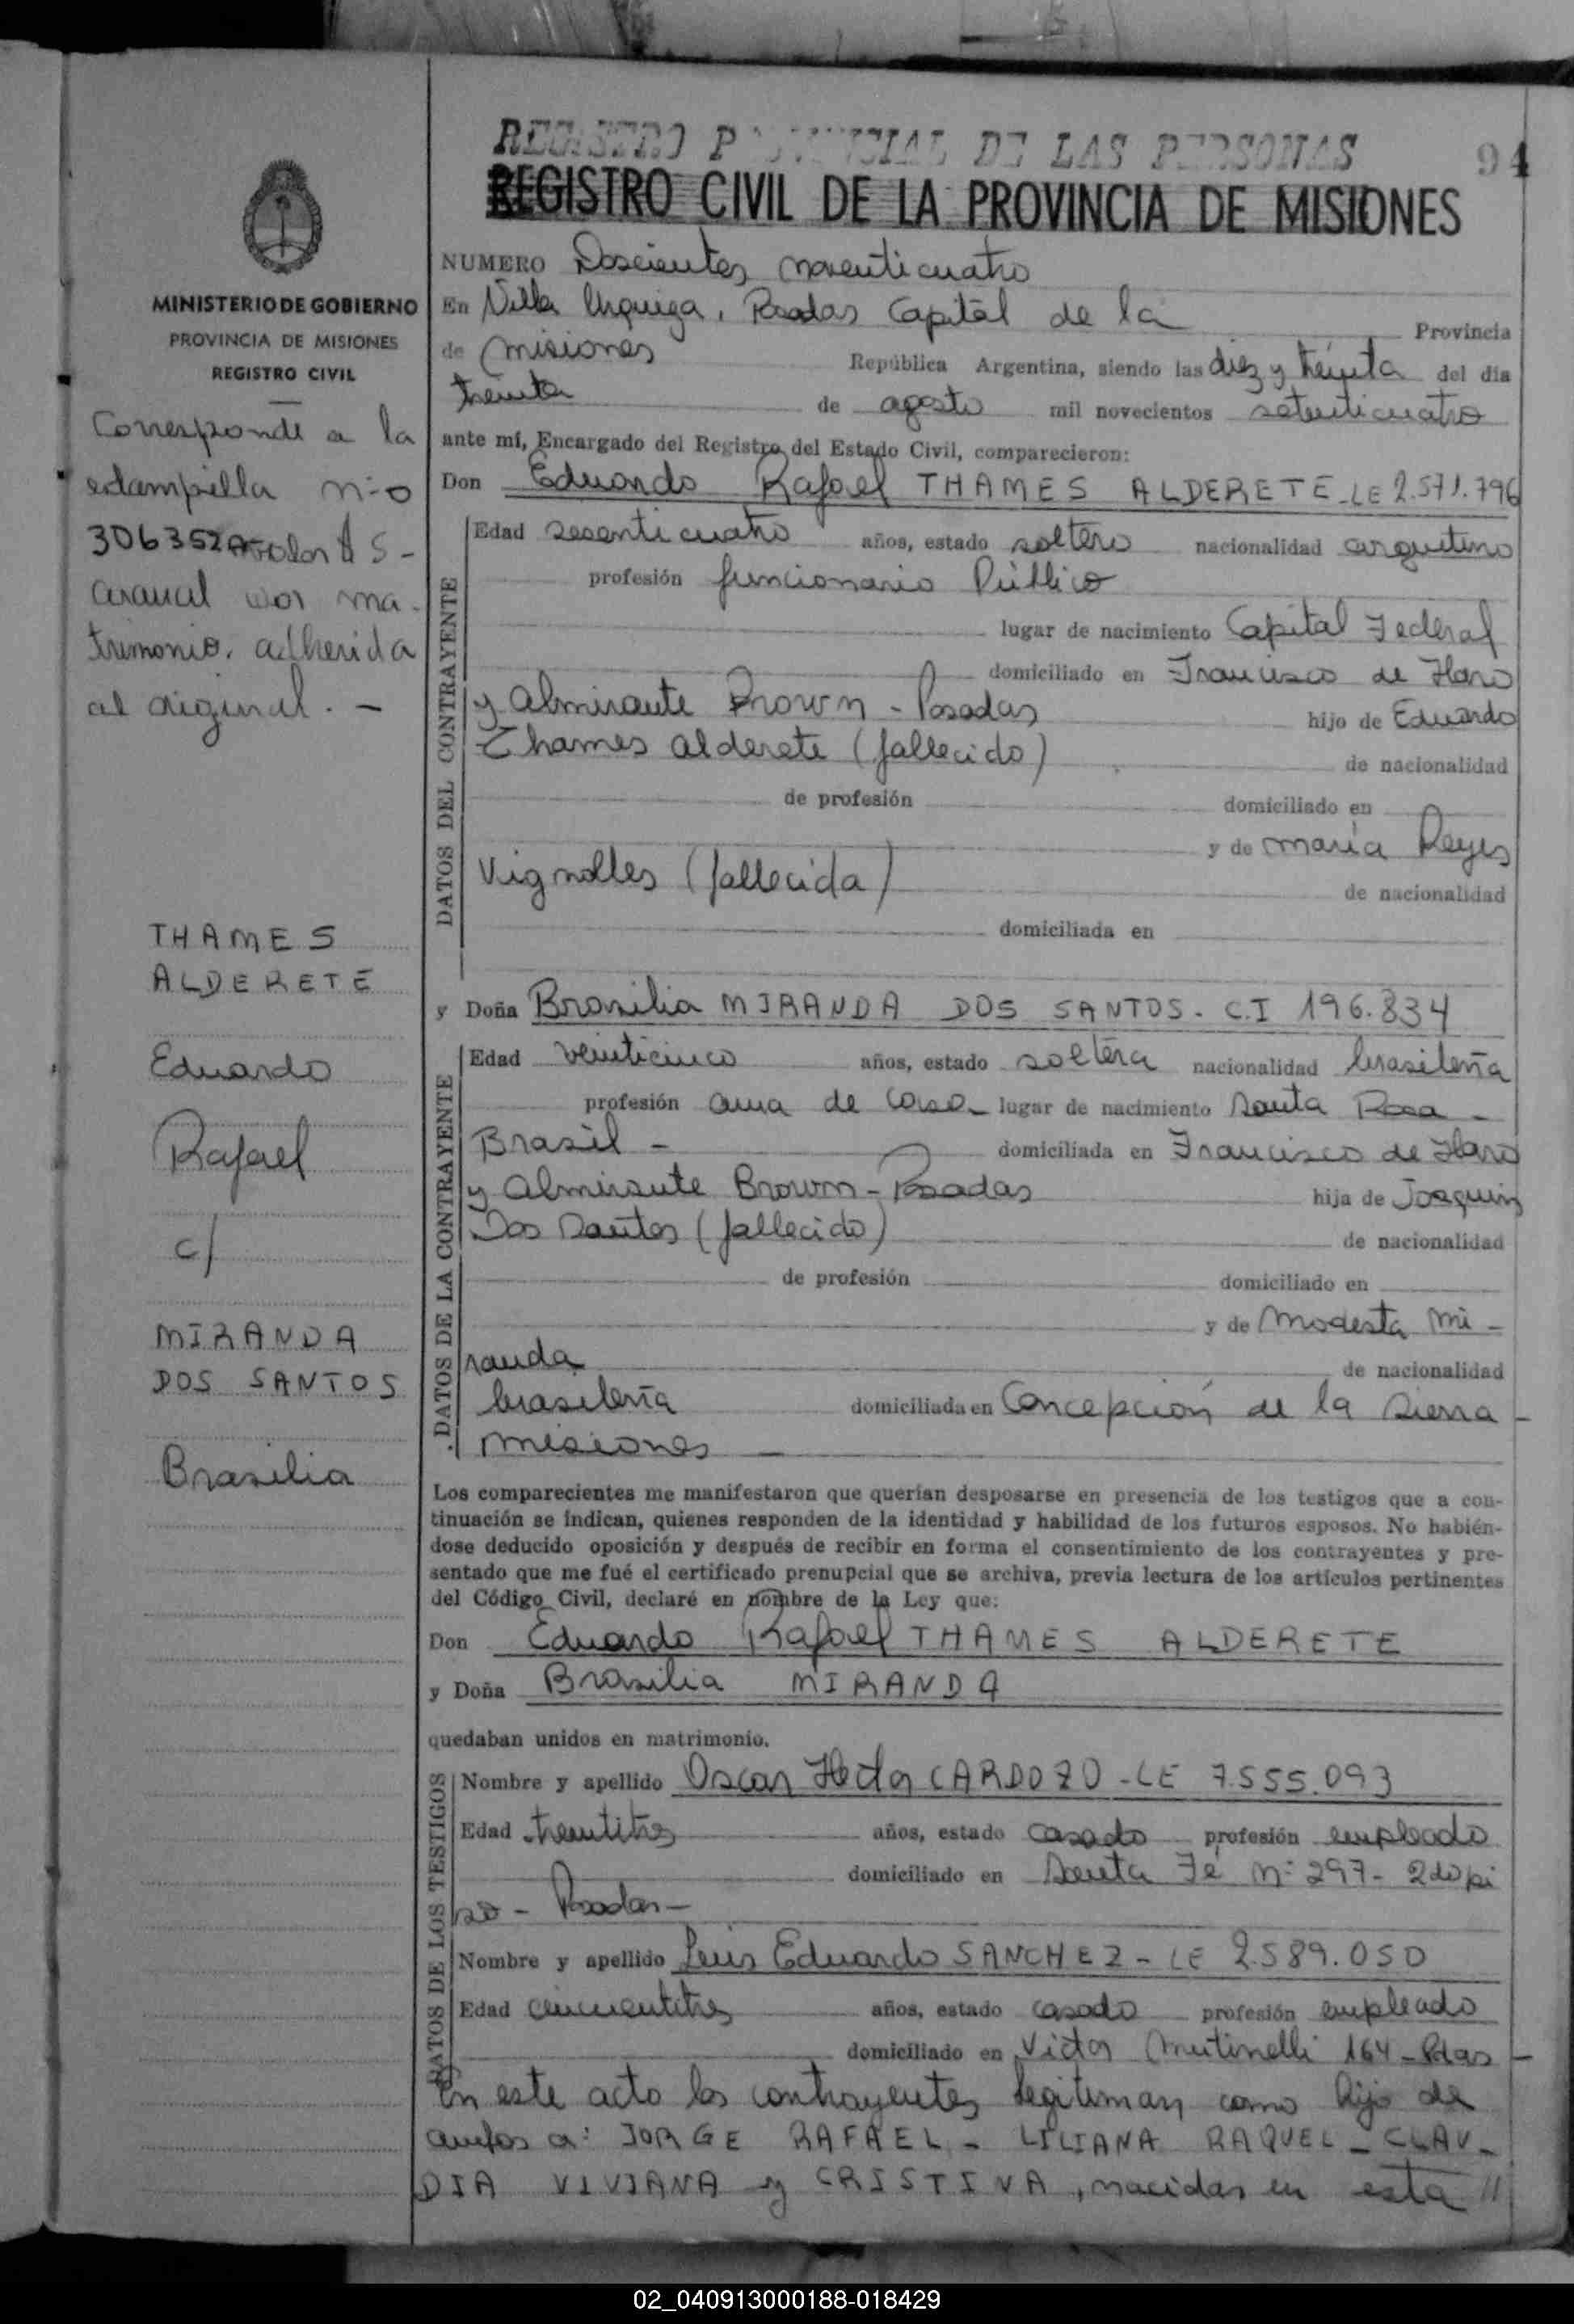 REGISTRO PROVINCIAL DE LAS PERSONAS
94
REGISTRO CIVIL DE LA PROVINCIA DE MISIONES
MINISTERIO DE GOBIERNO
PROVINCIA DE MISIONES
REGISTRO CIVIL
Corresponde a la
estampilla nº
306352A valor $ 5-
arancel por ma-
trimonio. adherida
al original. -
THAMES
ALDERETE
Eduardo
Rafael
c/
MIRANDA
DOS SANTOS
Brasilia
NUMERO Doscientos noventicuatro
En Villa Urquiza, Posadas Capital de la Provincia
de Misiones República Argentina, siendo las diez y treinta del día
treinta de agosto mil novecientos setenticuatro
ante mí, Encargado del Registro del Estado Civil, comparecieron:
Don Eduardo Rafael THAMES ALDERETE - LE 2.571.796
DATOS DEL CONTRAYENTE
Edad sesenticuatro años, estado soltero nacionalidad argentino
profesión funcionario Público
lugar de nacimiento Capital Federal
domiciliado en Francisco de Haro
y Almirante Brown - Posadas hijo de Eduardo
Thames Alderete (fallecido) de nacionalidad
de profesión domiciliado en
y de María Reyes
Vignolles (fallecida) de nacionalidad
domiciliada en
y Doña Brasilia MIRANDA DOS SANTOS - C.I 196.834
DATOS DE LA CONTRAYENTE
Edad veinticinco años, estado soltera nacionalidad brasileña
profesión ama de casa lugar de nacimiento Santa Rosa -
Brasil - domiciliada en Francisco de Haro
y Almirante Brown - Posadas hija de Joaquin
Dos Santos (fallecido) de nacionalidad
de profesión domiciliado en
y de Modesta Mi-
randa de nacionalidad
brasileña domiciliada en Concepción de la Sierra -
Misiones -
Los comparecientes me manifestaron que querían desposarse en presencia de los testigos que a con-
tinuación se indican, quienes responden de la identidad y habilidad de los futuros esposos. No habién-
dose deducido oposición y después de recibir en forma el consentimiento de los contrayentes y pre-
sentado que me fué el certificado prenupcial que se archiva, previa lectura de los artículos pertinentes
del Código Civil, declaré en nombre de la Ley que:
Don Eduardo Rafael THAMES ALDERETE
y Doña Brasilia MIRANDA
quedaban unidos en matrimonio.
DATOS DE LOS TESTIGOS
Nombre y apellido Oscar Hector CARDOZO - LE 7.555.093
Edad treintitres años, estado casado profesión empleado
domiciliado en Santa Fé Nº 297 - 2do pi
so - Posadas -
Nombre y apellido Luis Eduardo SANCHEZ - LE 2.589.050
Edad cincuentitres años, estado casado profesión empleado
domiciliado en Victor Mutinelli 164 - Pdas -
En este acto los contrayentes legitiman como hijo de
ambos a: JORGE RAFAEL - LILIANA RAQUEL - CLAU-
DIA VIVIANA y CRISTINA, nacidas en esta //
02_040913000188-018429